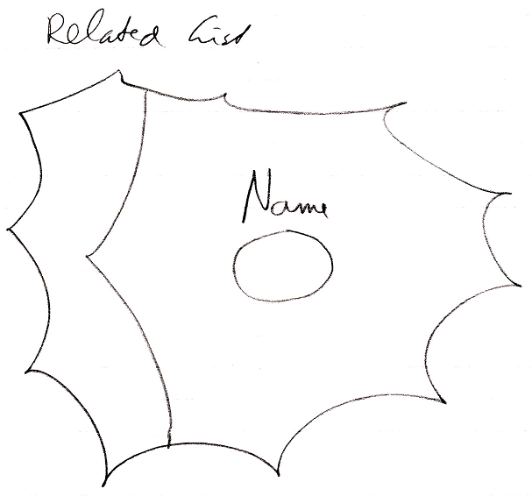 Related List
Name